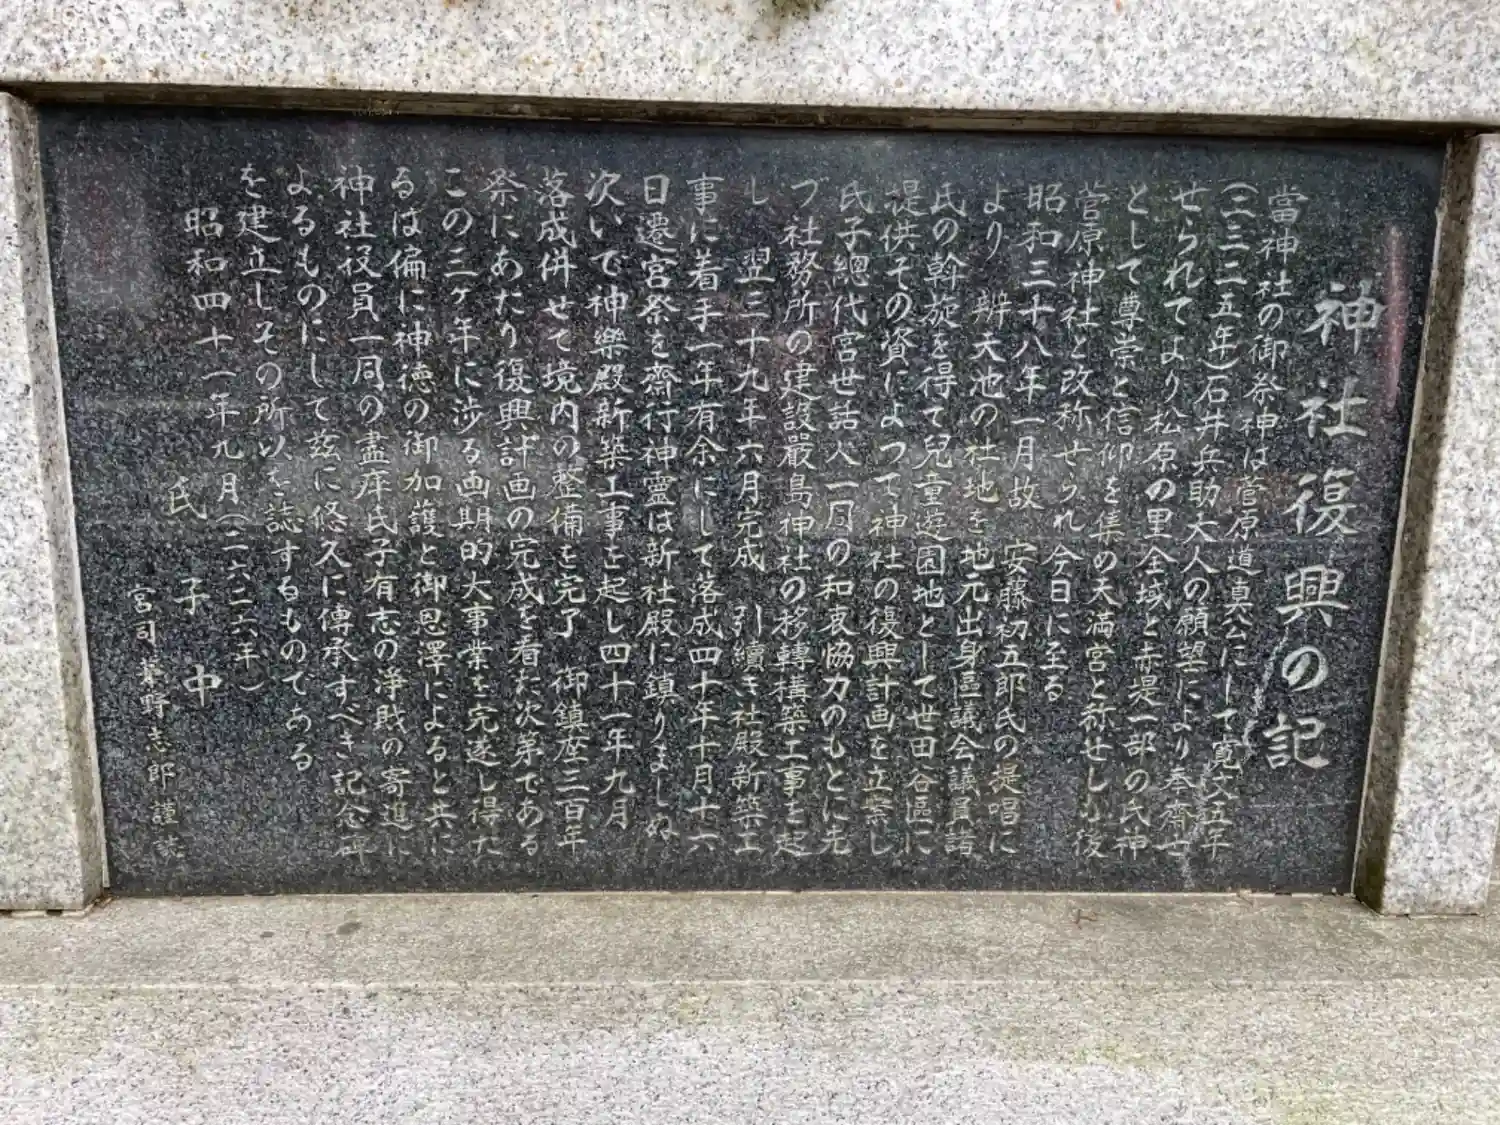 神社復興の記
當神社の御祭神は菅原道真公にして寛文五年
(二三二五年)石井兵助大人の願望により奉齋せ
せられてより松原の里全域と赤堤一部の氏神
として尊崇と信仰を集め天満宮と称せしが後
菅原神社と改称せられ今日に至る
昭和三十八年一月故 安藤初五郎氏の提唱に
より 辨天池の社地を地元出身區議会議員諸
氏の斡旋を得て兒童遊園地として世田谷區に
提供その資によつて神社の復興計画を立案し
氏子總代宮世話人一同の和衷協力のもとに先
づ社務所の建設嚴島神社の移轉構築工事を起
し 翌三十九年六月完成 引續き社殿新築工
事に着手一年有余にして落成四十年十月十六
日遷宮祭を齋行神靈は新社殿に鎮りましぬ
次いで神樂殿新築工事を起し四十一年九月
落成併せて境内の整備を完了 御鎮座三百年
祭にあたり復興計画の完成を看た次第である
この三ヶ年に涉る画期的大事業を完遂し得た
るは偏に神徳の御加護と御恩澤によると共に
神社役員一同の盡瘁氏子有志の淨財の寄進に
よるものにして茲に悠久に傳承すべき記念碑
を建立しその所以を誌するものである
昭和四十一年九月(二六二六年)
氏子中
宮司 野志郎謹